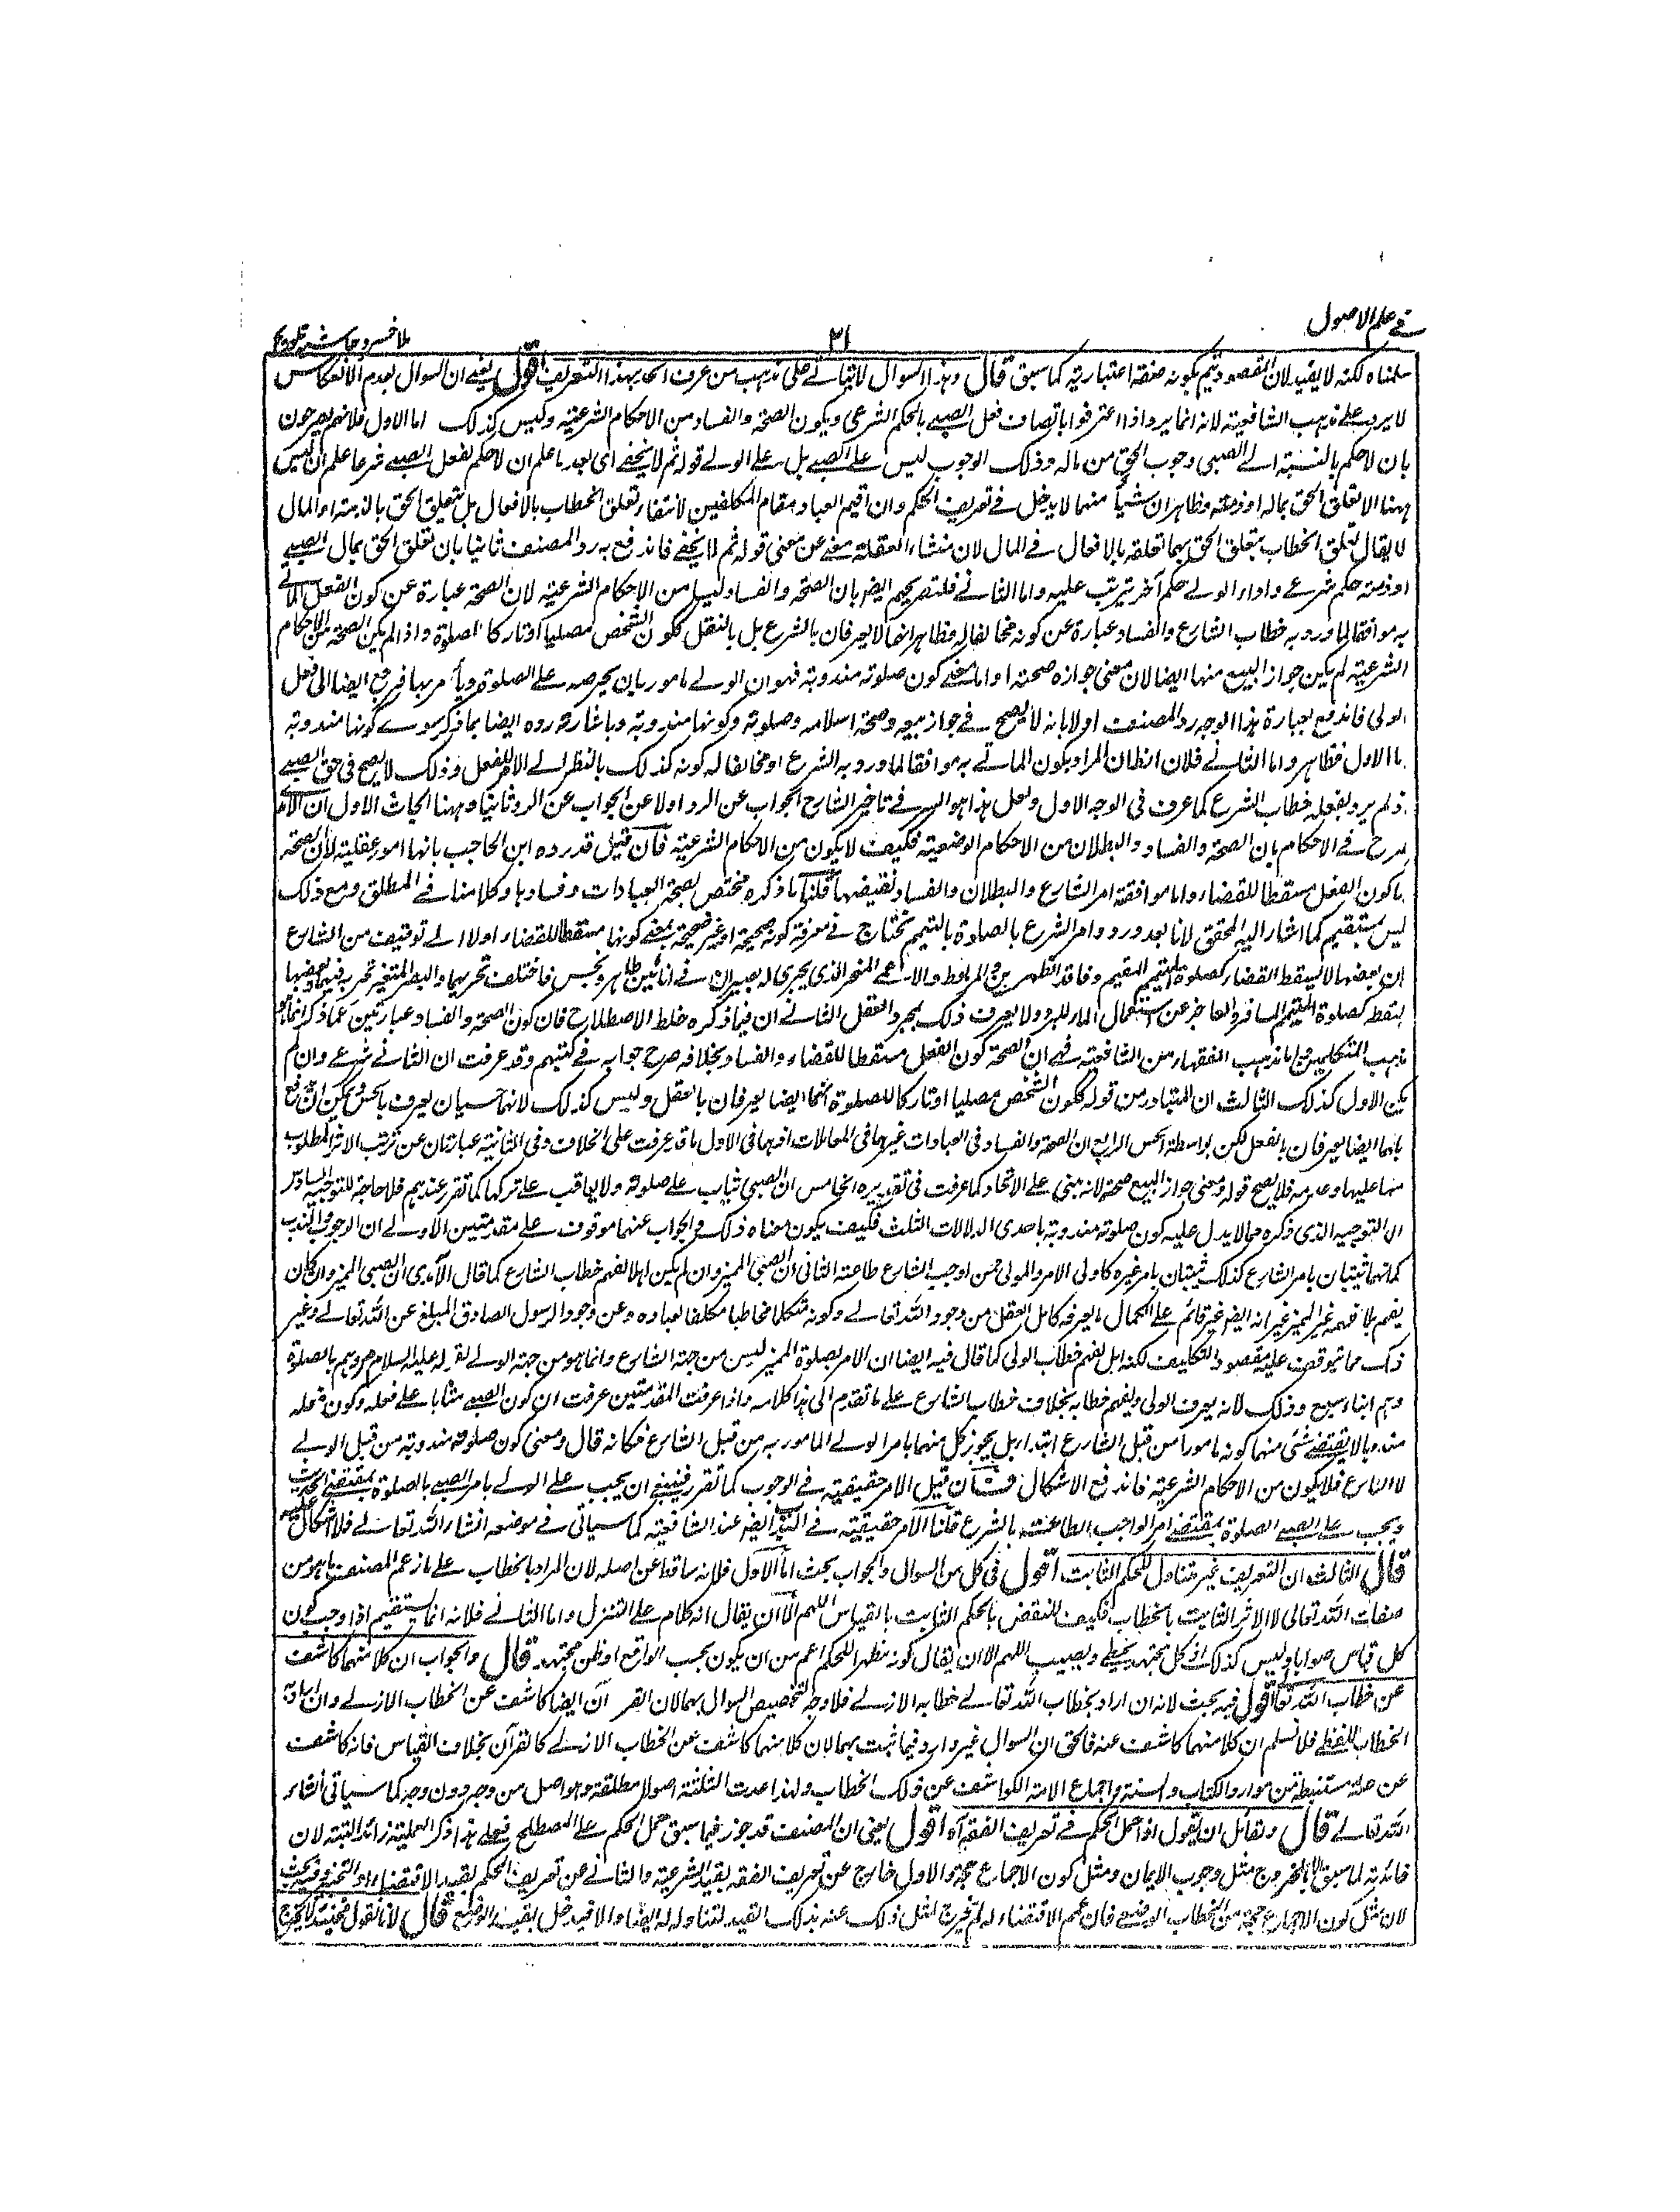 في علم الاصول
٢١
ملا خسرو حاشيه تلويح
سلمناه لكنه لا يفيد لان المقصود يتم بكونه صفة اعتبارية كما سبق قال وهذا السوال لا يتأتى على مذهب من عرف الحكم بهذا التعريف اقول يعنى ان السوال بعدم الانعكاس
لا يرد على مذهب الشافعية لانه انما يرد اذا اعترفوا باتصاف فعل الصبى بالحكم الشرعى ويكون الصحة والفساد من الاحكام الشرعية وليس كذلك اما الاول فلانهم يصرحون
بان لا حكم بالنسبة الى الصبى وجوب الحق من ماله وذلك الوجوب ليس على الصبى بل على الولى قوله ثم لا يخفى اى بعد ما علم ان لا حكم لفعل الصبى شرعا علم ان ليس
ههنا الا تعلق الحق بماله او ذمته وظاهر ان شيأ منهما لا يدخل فى تعريف الحكم وان اقيم العباد مقام المكلفين لانتفاء تعلق الخطاب بالافعال بل تعلق الحق بالذمة او المال
لا يقال تعلق الخطاب بتعلق الحق بهما تعلقه بالافعال فى المال لان منشاء الغفلة عن معنى قوله ثم لا يخفى فاندفع به رد المصنف ثانيا بان تعلق الحق بمال الصبى
او ذمته حكم شرعى واداء الولى حكم آخر يترتب عليه واما الثانى فلتصريحهم ايضا بان الصحة والفساد ليسا من الاحكام الشرعية لان الصحة عبارة عن كون الفعل المأتى
به موافقا لما ورد به خطاب الشارع والفساد عبارة عن كونه مخالفا له فظاهر انهما لا يعرفان بالشرع بل بالعقل ككون الشخص مصليا او تاركا للصلوة واذا لم يكن الصحة من الاحكام
الشرعية لم يكن جواز البيع منها ايضا لان معنى جوازه صحته او اما معنى كون صلوته مندوبة فهو ان الولى مامور بان يحرصه على الصلوة ويأمر بها فيرجع ايضا الى فعل
الولى فاندفع بعبارة هذا الوجه رد المصنف اولا بانه لا يصح فى جواز بيعه وصحة اسلامه وصلوته وكونها مندوبة وباشارته رده ايضا بما ذكر سوى كونها مندوبة
اما الاول فظاهر واما الثانى فلان الظان المراد بكون المأتى به موافقا لما ورد به الشرع او مخالفا له كونه كذلك بالنظر الى الامر للفعل وذلك لا يصح فى حق الصبى
اذ لم يرد لفعله خطاب الشرع كما عرف فى الوجه الاول ولعل هذا هو السر فى تاخير الشارح الجواب عن الرد اولا عن الجواب عن الرد ثانيا وههنا ابحاث الاول ان الآمدى
صرح فى الاحكام بان الصحة والفساد والبطلان من الاحكام الوضعية فكيف لا يكون من الاحكام الشرعية فان قيل قد رده ابن الحاجب بانها امور عقلية لان الصحة
اما كون الفعل مسقطا للقضاء واما موافقة امر الشارع والبطلان والفساد نقيضها قلنا ما ذكره مختص بصحة العبادات وفسادها وكلامنا فى المطلق ومع ذلك
ليس بمستقيم كما اشار اليه المحقق لانا بعد ورود امر الشرع بالصلوة بالتيمم نحتاج فى معرفة كونه صحيحة او غير صحيحة بمعنى كونها مسقطا للقضاء او لا الى توقيف من الشارع
ان بعضها لا يسقط القضاء كصلوة المتيمم المقيم وفاقد الطهرين والمربوط والاعمى المتحر الذى يجرى له بصيران فى انائين طاهر ونجس فاختلف تحريهما والبصير المتغير تحريه فيها وبعضها
يسقط كصلوة المتيمم المسافر والعاجز عن استعمال الماء للبرد ولا يعرف ذلك بمجرد العقل الثانى ان فيما ذكره خلط الاصطلاح فان كون الصحة والفساد عبارتين عما ذكر انما هو
مذهب المتكلمين اما مذهب الفقهاء من الشافعية فهى ان الصحة كون الفعل مسقطا للقضاء والفساد بخلافه صرح جوابه فى كتبهم وقد عرفت ان الثانى شرعى وان لم
يكن الاول كذلك الثالث ان المتبادر من قوله ككون الشخص مصليا او تاركا للصلوة انهما ايضا يعرفان بالعقل وليس كذلك لانهما حسيان يعرف بالحس ويمكن ان يدفع
بانهما ايضا يعرفان بالعقل لكن بواسطة الحس الرابع ان الصحة والفساد فى العبادات غيرهما فى المعاملات اذ هما فى الاول ما قد عرفت على الخلاف وفى الثانية عبارتان عن ترتب الاثر المطلوب
منها عليها وعدمه فلا يصح قوله ومعنى جواز البيع صحته لانه مبنى على الاتحاد كما عرفت فى تقريره الخامس ان الصبى يثاب على صلوته ولا يعاقب على تركها كما تقرر عندهم فلا حاجة للتوجيه
الا التوجيه الذى ذكره مما لا يدل عليه كون صلوته مندوبة باحدى الدلالات الثلث فكيف يكون معناه ذلك والجواب عنهما موقوف على مقدمتين الاولى ان الوجوب والندب
كما انهما يثبتان بامر الشارع كذلك يثبتان بامر غيره كاولى الامر والمولى ممن اوجب الشارع طاعته الثانى ان الصبى المميز وان لم يكن اهلا لفهم خطاب الشارع كما قال الآمدى ان الصبى المميز وان كان
يفهم ما لا يفهمه غير المميز غير انه ايضا غير قائم على الكمال ما يعرفه كامل العقل من وجود الله تعالى وكونه متكلما مخاطبا مكلفا لعباده وعن وجود الرسول الصادق المبلغ عن الله تعالى وغير
ذلك مما يتوقف عليه مقصود التكليف لكنه اهل لفهم خطاب الولى كما قال فيه ايضا ان الامر بصلوة المميز ليس من جهة الشارع وانما هو من جهة الولى لقوله عليه السلام مروهم بالصلوة
وهم ابناء سبع وذلك لانه يعرف الولى ويفهم خطابه بخلاف خطاب الشارع على ما تقدم الى هنا كلامه واذا عرفت المقدمتين عرفت ان كون الصبى مثابا على فعله وكون فعله
مندوبا لا يقتضى شئ منهما كونه مامورا من قبل الشارع ابتداء بل يجوز كل منهما بامر الولى المامور به من قبل الشارع فكانه قال ومعنى كون صلوته مندوبة من قبل الولى
لا الشارع فلا يكون من الاحكام الشرعية فاندفع الاشكال فان قيل الامر حقيقة فى الوجوب كما تقرر فينبغى ان يجب على الولى بامر الصبى بالصلوة بمقتضى الحديث
ويجب على الصبى الصلوة بمقتضى امر الواجب الطاعة بالشرع قلنا الامر حقيقة فى الندب ايضا عند الشافعية كما سياتى فى موضعه انشاء الله تعالى فلا اشكال عليه
قال الثالث ان التعريف غير متناول للحكم الثابت اقول فى كل من السوال والجواب بحث اما الاول فلانه ساقط عن اصله لان المراد بالخطاب على ما زعم المصنف ما هو من
صفات الله تعالى لا الاثر الثابت بالخطاب فكيف للنقض بالحكم الثابت بالقياس اللهم الا ان يقال انه كلام على التنزل واما الثانى فلانه انما يستقيم اذا وجب كون
كل قياس صوابا وليس كذلك اذ كل مجتهد يخطى ويصيب اللهم الا ان يقال كونه مظهرا للحكم اعم من ان يكون بحسب الواقع او ظن مجتهد قال والجواب ان كلا منهما كاشف
عن خطاب الله تعالى اقول فيه بحث لانه ان اراد بخطاب الله تعالى خطابه الازلى فلا وجه لتخصيص السوال بهما لان القرآن ايضا كاشف عن الخطاب الازلى وان اراد به
الخطاب اللفظى فلا نسلم ان كلا منهما كاشف عنه فالحق ان السوال غير وارد فيما ثبت بهما لان كلا منهما كاشف عن الخطاب الازلى كالقرآن بخلاف القياس فانه كاشف
عن علة مستنبطة من موارد الكتاب والسنة واجماع الامة الكواشف عن ذلك الخطاب ولهذا عدت الثلثة اصولا مطلقة وهو اصل من وجه دون وجه كما سياتى انشاء
الله تعالى قال ولقائل ان يقول اذا حمل الحكم فى تعريف الفقه آه اقول يعنى ان المصنف قد جوز فيما سبق حمل الحكم على المصطلح فعلى هذا ذكر العملية زائد البتة لان
فائدته لما سبق الاخراج مثل وجوب الايمان ومثل كون الاجماع حجة والاول خارج عن تعريف الفقه بقيد الشرعية والثانى عن تعريف الحكم بقيد الاقتضاء او التخيير وفيه بحث
لان مثل كون الاجماع حجة من الخطاب الوضعى فان عمم الاقتضاء له لم يخرج مثل ذلك عنه بذلك القيد لتناوله له ايضا والا فيدخل بقيد الوضع قال لانا نقول فحينئذ لا يخرج